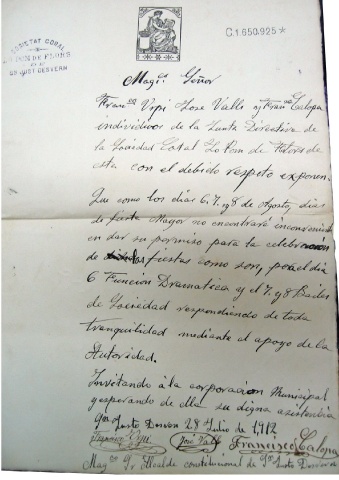 SOCIETAT CORAL
LO POM DE FLORS
SN JUST DESVERN
C.1.650.925*
Magco Señor
Francco Vipi Jose Valls y Franco Calopa
individuos de la Junta Directiva de
la Sociedad Coral Lo Pom de Flors de
esta con el debido respeto exponen.
Que como los dias 6. 7. y 8 de Agosto, dias
de fiesta Mayor no encontrará inconveniente
en dar su permiso para la celebración
de fiestas como son, por el dia
6 Función Dramatica y el 7. y 8 Bailes
de Sociedad respondiendo de toda
tranquilidad mediante el apoyo de la
Autoridad.
Invitando á la corporación Municipal
y esperando de ella su digna asistencia
Sn Justo Desvern 28 Julio de 1912
Francisco Vipi José Valls Francisco Calopa
Magco Sr Alcalde constitucional de Sn Justo Desvern